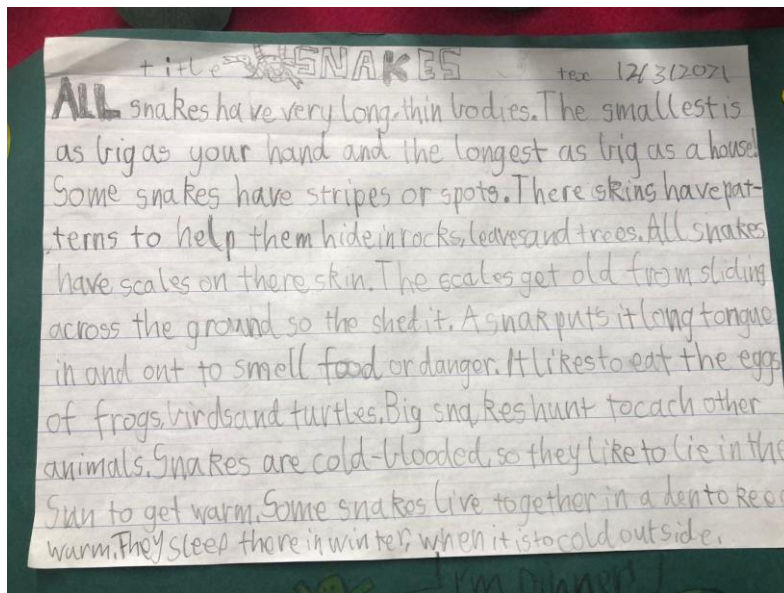 title SNAKES tex 12/3/2021
ALL snakes have very long, thin bodies. The smallest is
as big as your hand and the longest as big as a house!
Some snakes have stripes or spots. There skins have pat-
terns to help them hide in rocks, leaves and trees. All snakes
have scales on there skin. The scales get old from sliding
across the ground so the shed it. A snak puts it long tongue
in and out to smell food or danger. It likes to eat the eggs
of frogs, birds and turtles. Big snakes hunt to cach other
animals. Snakes are cold-blooded, so they like to lie in the
Sun to get warm. Some snakes live together in a den to keep
warm. They sleep there in winter, when it is to cold outside.
I'm Dinner!